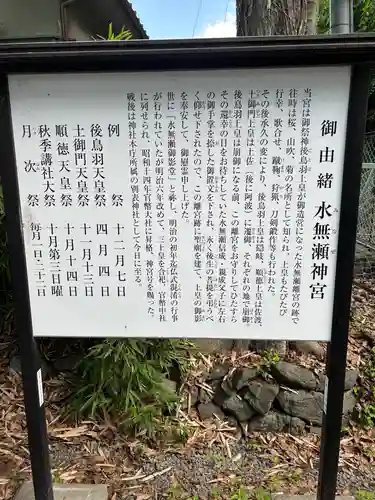 御由緒 水無瀬神宮
当宮は御祭神後鳥羽上皇が御造営になった水無瀬離宮の跡で
往時は桜、山吹、菊の名所として知られ、上皇もたびたび
行幸、歌合せ、蹴鞠、狩猟、刀剣鍛作等も行われた。
その後承久の変により、後鳥羽上皇は隠岐、順徳上皇は佐渡、
土御門上皇は土佐(後に阿波)に遷御、それぞれの地で崩御。
後鳥羽上皇は崩御になる前、この離宮をお守りしてひたすら
その還幸の日をお待ちしていた水無瀬信成、親成父子に左右
の御手掌を捺した御置文を
く仰せ下されたので、この離宮跡に聖廟を建て、上皇の御影
を奉安して、御慰霊申し上げた。
世に「水無瀬御影堂」と称し、明治の初年迄仏式混淆の行事
が行われていたが明治六年改めて、三上皇を合祀、官幣中社
に列せられ、昭和十四年官幣大社に昇格、神宮号を賜った。
戦後は神社本庁所属の別表神社として今日に至る。
例祭 十二月七日
後鳥羽天皇祭 四月四日
土御門天皇祭 十一月十三日
順徳天皇祭 十月十四日
秋季講社大祭 十月第三日曜
月次祭 毎月一日・二十二日